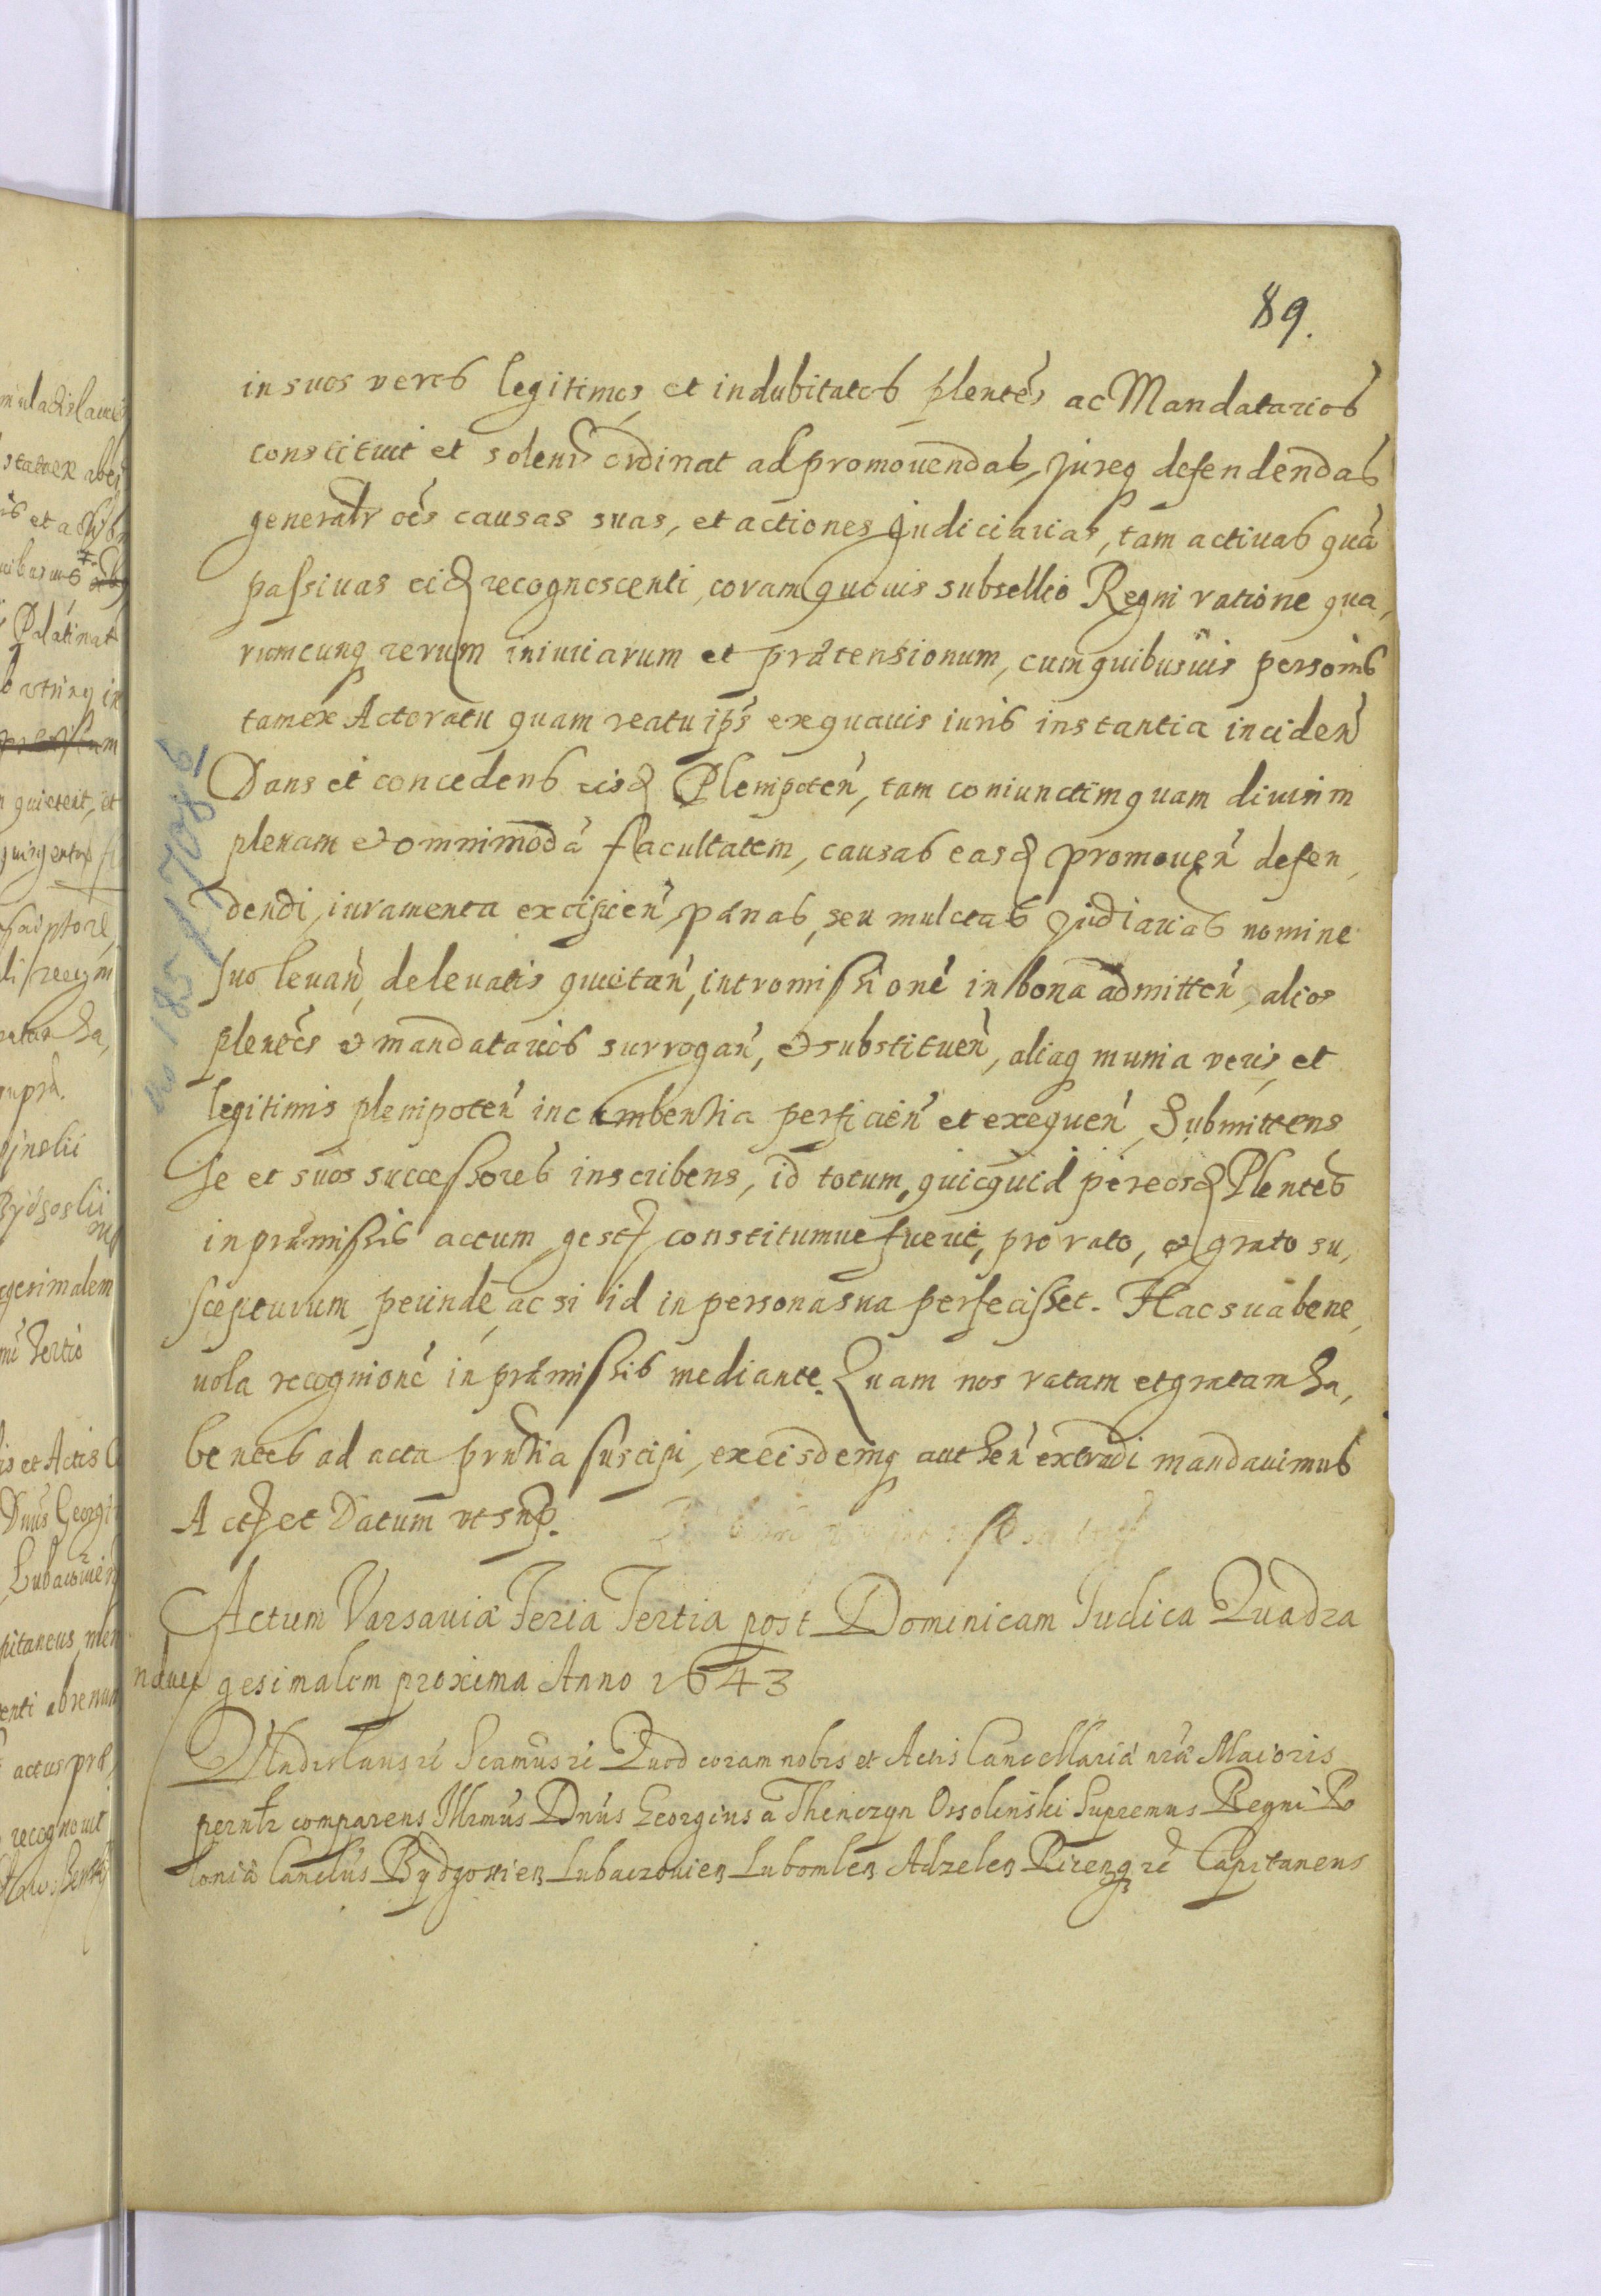 89.
in suos veros legitimos et indubitatos plentes ac Mandatarios
constituit et solenr ordinat ad promouendas, jureq defendendas
generalr oēs causas suas, et actiones Judiciarias, tam actiuas quā
passiuas eid recognoscenti, coram quouis subsellio Regni ratione qua,
rumcunq rerum iniuriarum et prætensionum, cum quibusuis personis
tam ex Actoratu quam reatu ips ex quauis iuris instantia inciden
Dans et concedens eisd Plenipoten, tam coniunctim quam diuisim
plenam et omnimodā facultatem, causas easd promouen defen,
dendi, iuramenta excipien, pænas, seu mulctas judiciarias nomine
suo leuan, de leuatis quietan, intromissionē in bona admitten, alios
plentes et mandatarios surrogan, et substituen, aliaq munia veris et
legitimis plenipoten incumbentia perficien et exequen, Submittens
se et suos successores inscribens, id totum, quicquid per eosd Plentes
in præmissis actum gest constitumue fuerit, pro rato, et grato su,
scepturum, perinde ac si id in persona sua perfecisset. Hac sua bene,
uola recognionē in præmissis mediante. Quam nos ratam et gratam ha,
bentes ad acta prntia suscipi, ex eisdemq authen extradi mandauimus
Act et Datum ut sup.
Actum Varsauiæ Feria Tertia post Dominicam Judica Quadra
gesimalem proxima Anno 1643
Vladislaus ze Scamus ze Quod coram nobis et Actis Cancellariæ nræ Maioris
perntr comparens Illrmus Dnus Georgius a Thenczyn Ossolinski Supremus Regni Po
loniæ Canclus Bydgostien Lubaczouien Lubomlen Adzelen ze Capitaneus